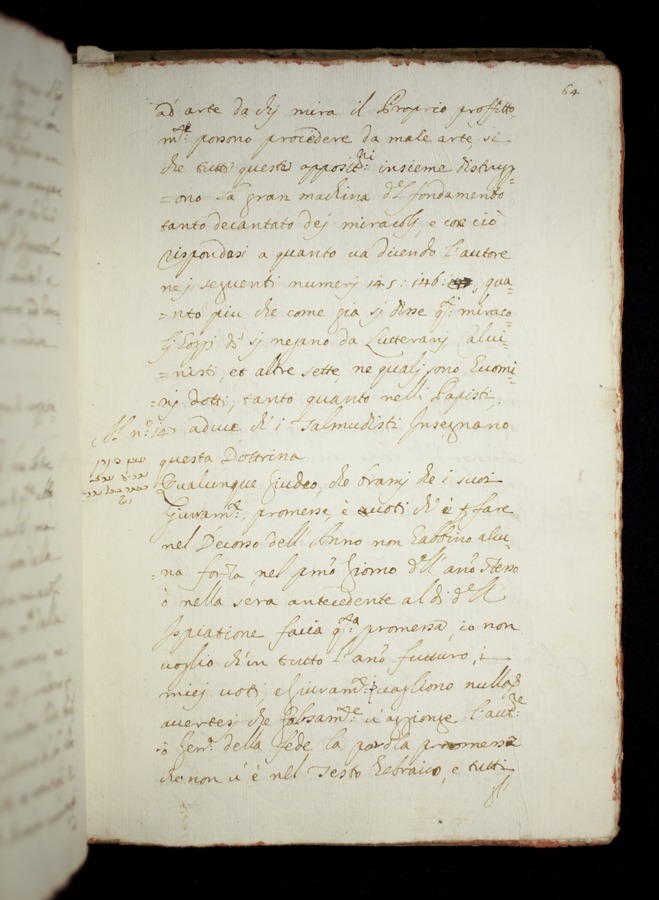 64
ad arte da chj mira il Proprio proffitto,
m.te possono procedere da male arte, si
che tutti questi opposit.ni insieme distrug=
=ono la gran machina d.l fondamento
tanto decantato dej miracolj, e con ciò
rispondasi a quanto va dicendo l'autore
nej seguenti numerj 145: 146: qua=
=nto piu che come gia sj disse q.ti miraco=
lj Loro sj nejano da Lutteranj Calui=
=nisti, et altre sette, ne qualj sono Euomi=
=nj dotti, tanto quanto nelli Papisti,
Al n.o 147 aduce ch'i Talmudisti Insegnano
questa Dottrina
Qualunque Giudeo, che bramj che i suoi
Giuram.ti, promesse, è uoti ch'è p fare
nel Decorso dell'Anno non habbino alcu=
=na forza, nel pmo Giorno d.ll'ano stesso
ò nella sera antecedente al dì d.ll
Ispiatione facia q.sta promessa, io non
voglio ch'in tutto l'ano futturo, i
miej uoti e Giuram.ti vagliono nulla, è
auertej che falsam.te ui aggionge l'aut.re
ò Gen.e della fede, la parola promessa
che non ui è nel Testo hebraico, e tutti
gl'